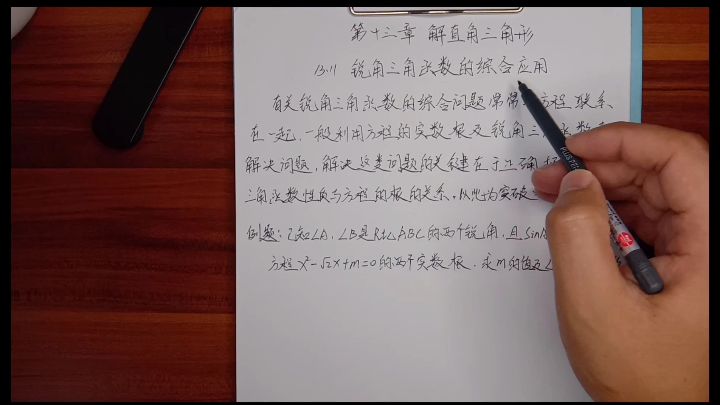 第十三章 解直角三角形
13.11 锐角三角函数的综合应用
有关锐角三角函数的综合问题常常 方程联系
在一起,一般利用方程的实数根及锐角三 函数
解决问题,解决这类问题的关键在于正确
三角函数性质与方程的根的关系。以此为突破
例题:已知∠A,∠B是Rt△ABC的两个锐角,且sin
方程x²-√2x+m=0的两个实数根,求m的值及∠